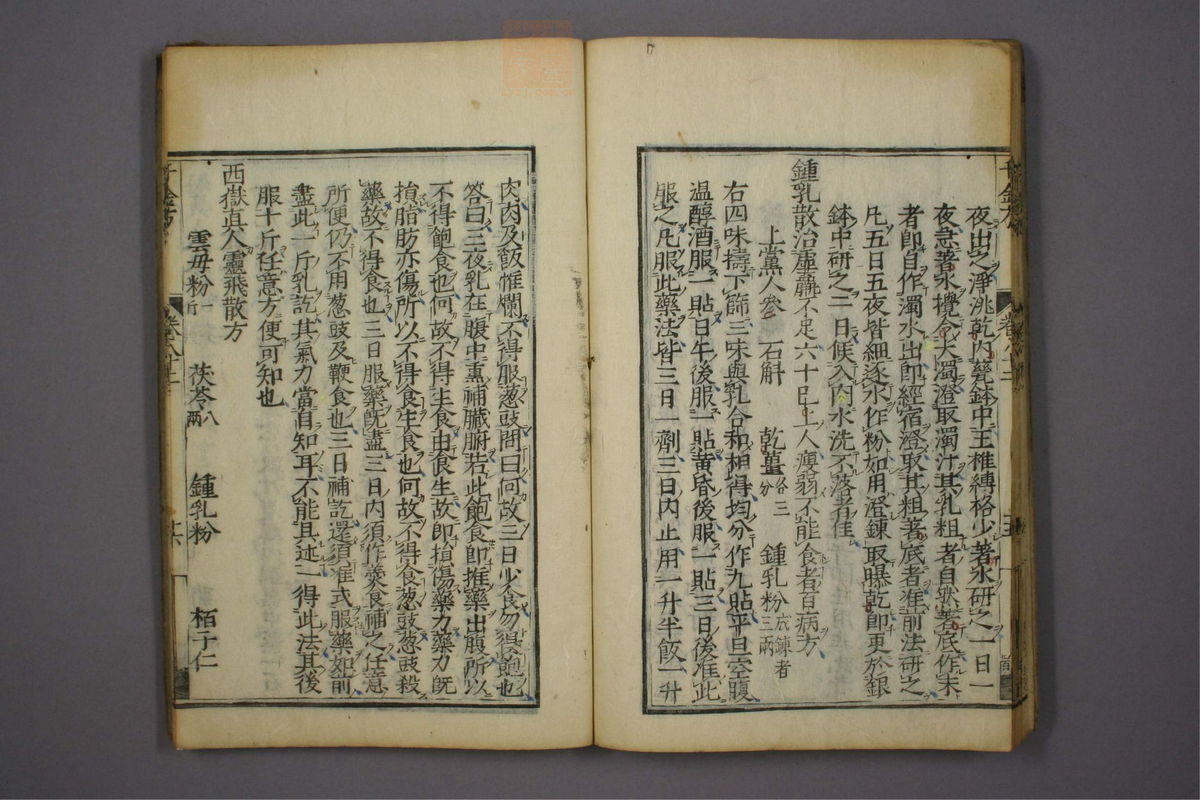 夜出之淨洮乾內甆鉢中玉椎縛格少著水研之一日一
夜急著水攪令大濁澄取濁汁其乳粗者自然著底作末
者即自作濁水出即經宿澄取其粗著底者准前法研之
凡五日五夜皆細逐水作粉如用澄鍊取曝乾即更於銀
鉢中研之一日候入肉水洗不落者佳
鍾乳散治虛羸不足六十已上人瘦弱不能食者百病方
上黨人參 石斛 乾薑各三分 鍾乳粉成鍊者三兩
右四味擣下篩三味與乳合和相得均分作九貼平旦空腹
温醇酒服一貼日午後服一貼黃昏後服一貼三日後准此
服之凡服此藥法皆三日一劑三日內止用一升半飯一升
肉肉及飯惟爛不得服葱豉問曰何故三日少食勿得飽也
答曰三夜乳在腹中熏補臟腑若此飽食即推藥出腹所以
不得飽食也何故不得生食由食生故即損傷藥力藥力既
損脂肪亦傷所以不得食生食也何故不得食葱豉葱豉殺
藥故不得食也三日服藥既盡三日內須作羹食補之任意
所便仍不用葱豉及鞕食也三日補訖還須准式服藥如前
盡此一斤乳訖其氣力當自知耳不能具述一得此法其後
服十斤任意方便可知也
西嶽真人靈飛散方
雲母粉一斤 茯苓八兩 鍾乳粉 栢子仁